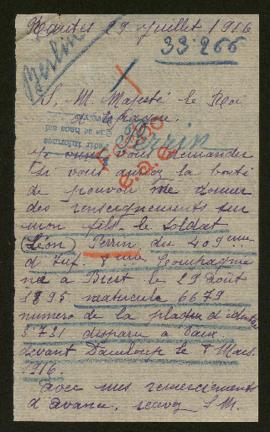 Nantes 29 Juillet 1916
33266
Berlin
S. M. Majesté le Roi
d'Espagne.
Perrin
Je viens vous demander
si vous auriez la bonté
de pouvoir me donner
des renseignements sur
mon fils le soldat
Léon Perrin du 409 eme
d'Inf. eme Compagnie
né a Brest le 29 août
1895 matricule 6679
numero de la plaque d'identité
5731 disparu a Vaux
devant Damloup le Mars
1916.
avec mes remerciements
d'avance, recevez S. M.